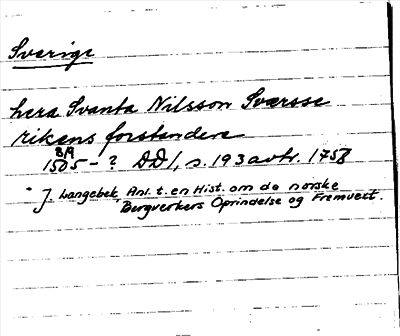 Sverige
hera Svanta Nilsson Sværsse
rikens forstandere
8/9
1505 - ? DD1, s. 193 avtr. 1758
* J. Langebek, Anl. t. en Hist. om de norske
Bergverkers Oprindelse og Fremvext.